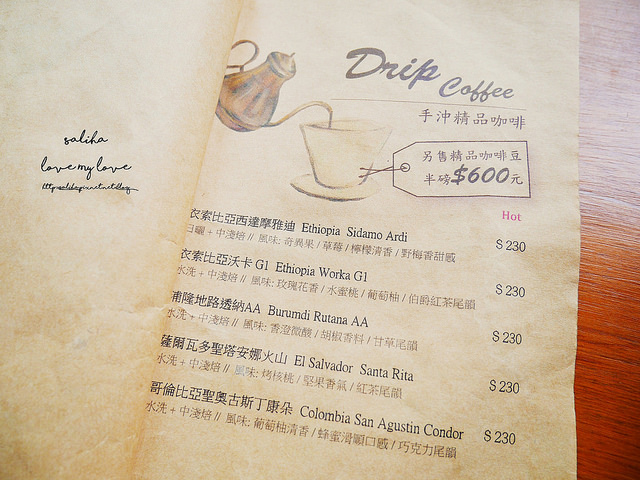 saliha
love my love
Drip Coffee
手沖精品咖啡
另售精品咖啡豆
半磅$600元
Hot
衣索比亞西達摩雅迪 Ethiopia Sidamo Ardi $230
日曬+中淺焙 // 風味: 奇異果/草莓/檸檬清香/野梅香甜感
衣索比亞沃卡 G1 Ethiopia Worka G1 $230
水洗+中淺焙 // 風味: 玫瑰花香/水蜜桃/葡萄柚/伯爵紅茶尾韻
蒲隆地路透納AA Burumdi Rutana AA $230
水洗+中淺焙 // 風味: 香澄微酸/胡椒香料/甘草尾韻
薩爾瓦多聖塔安娜火山 El Salvador Santa Rita $230
水洗+中淺焙 // 風味: 烤核桃/堅果香氣/紅茶尾韻
哥倫比亞聖奧古斯丁康朵 Colombia San Agustin Condor $230
水洗+中淺焙 // 風味: 葡萄柚清香/蜂蜜滑順口感/巧克力尾韻